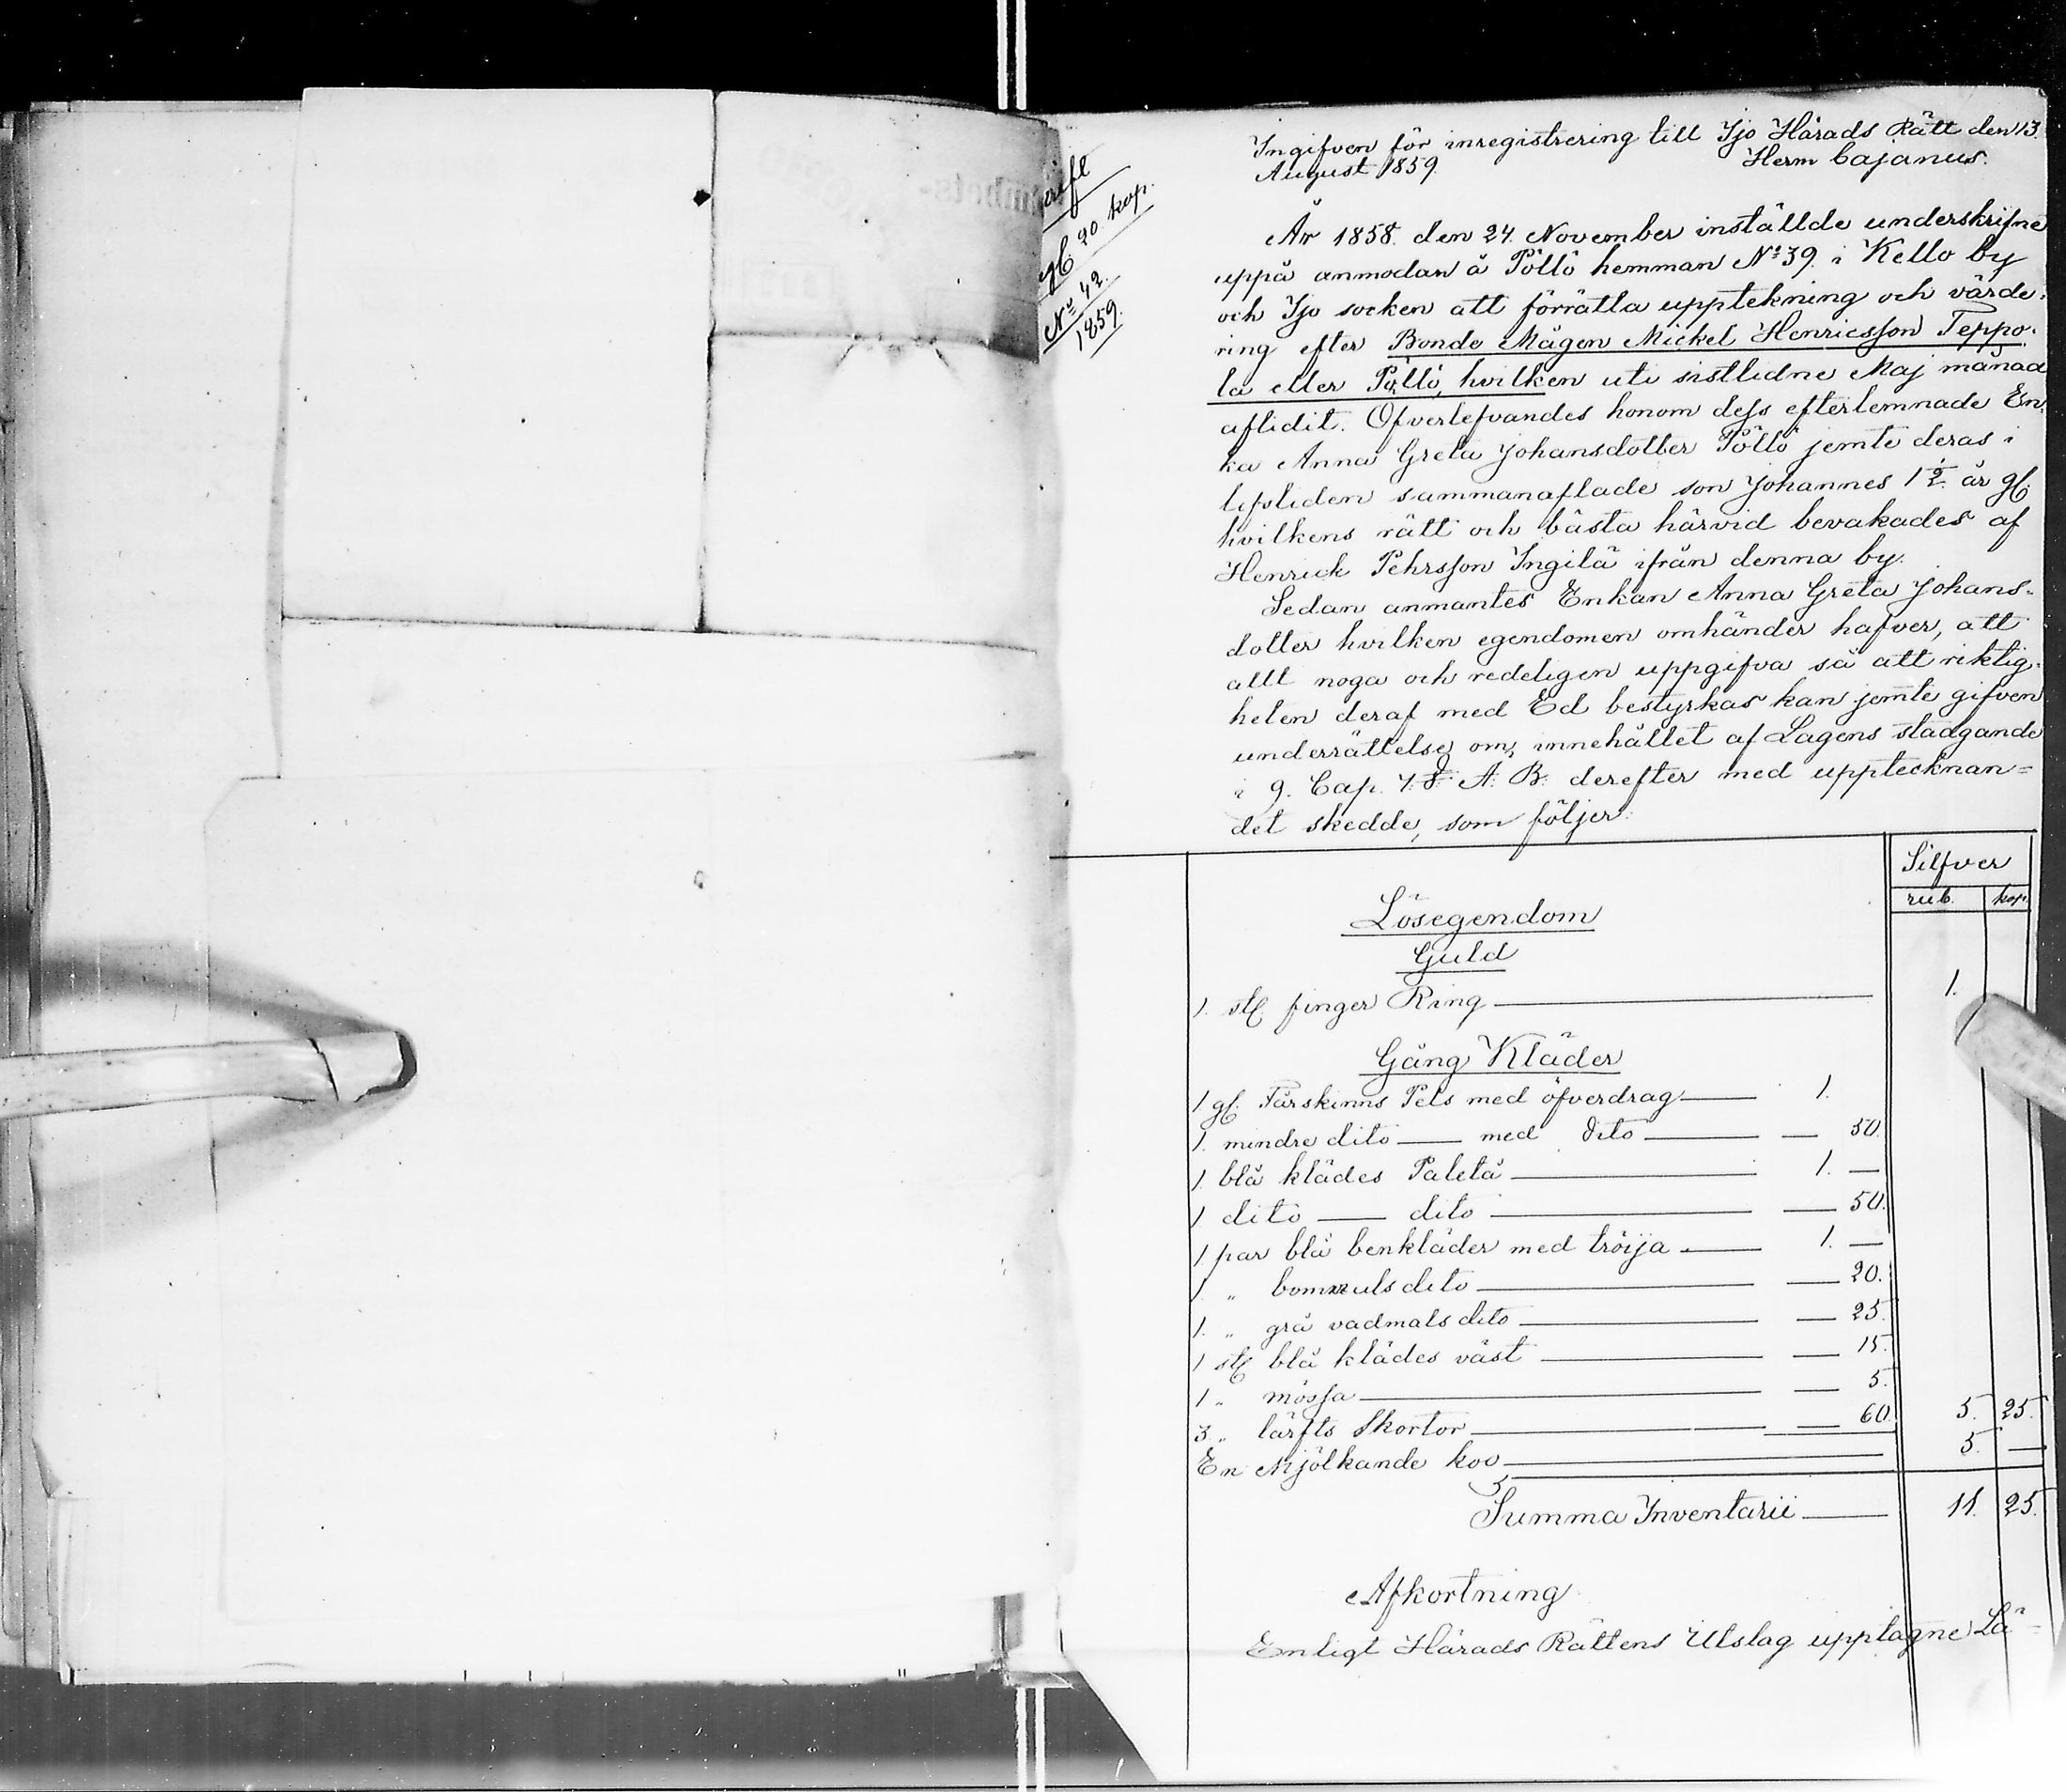 Ingifven för inregistrering till Ijo Härads Rätt den 13.
August 1859. Herm Cajanus.
gl. 20 kop.
No 42.
1859.
År 1858. den 24. November inställde underskrifne
uppå anmodan å Pöllö hemman No 39. i Kello by
och Ijo socken att förrätta upptekning och värde-
ring efter Bonde Mågen Mickel Henricsson Teppo-
la eller Pöllö, hvilken uti sistlidne Maj månad
aflidit. Öfverlefvandes honom dess efterlemnade En-
ka Anna Greta Johansdotter Pöllö jemte deras i
lifstiden sammanaflade son Johannes 1 1/2 år gl.
hvilkens rätt och bästa härvid bevakades af
Henrick Pehrsson Ingilä ifrån denna by.
Sedan anmantes Enkan Anna Greta Johans-
dotter hvilken egendomen omhänder hafver, att
allt noga och redeligen uppgifva så att riktig-
heten deraf med Ed bestyrkas kan jemte gifven
underrättelse om, innehållet af Lagens stadgande
i 9. Cap. 7. § Ä. B. derefter med upptecknan=
det skedde, som följer.
Silfver
rub. kop.
Lösegendom
Guld
1. st. finger Ring 1.
Gång Kläder
1 gl. Fårskinns Pels med öfverdrag 1.
1. mindre dito med dito 50.
1. blå klädes Paletå 1. —
1 dito dito 50.
1. par blå benkläder med tröija 1. —
1 " bommuls dito 20.
1. " grå vadmals dito 25.
1 st. blå klädes väst 15.
1 " mössa 5.
3 " lärfts Skortor 60. 5. 25.
En Mjölkande koo 5. —
Summa Inventarii 11. 25.
Afkortning
Enligt Härads Rättens Utslag upptagne Lä=